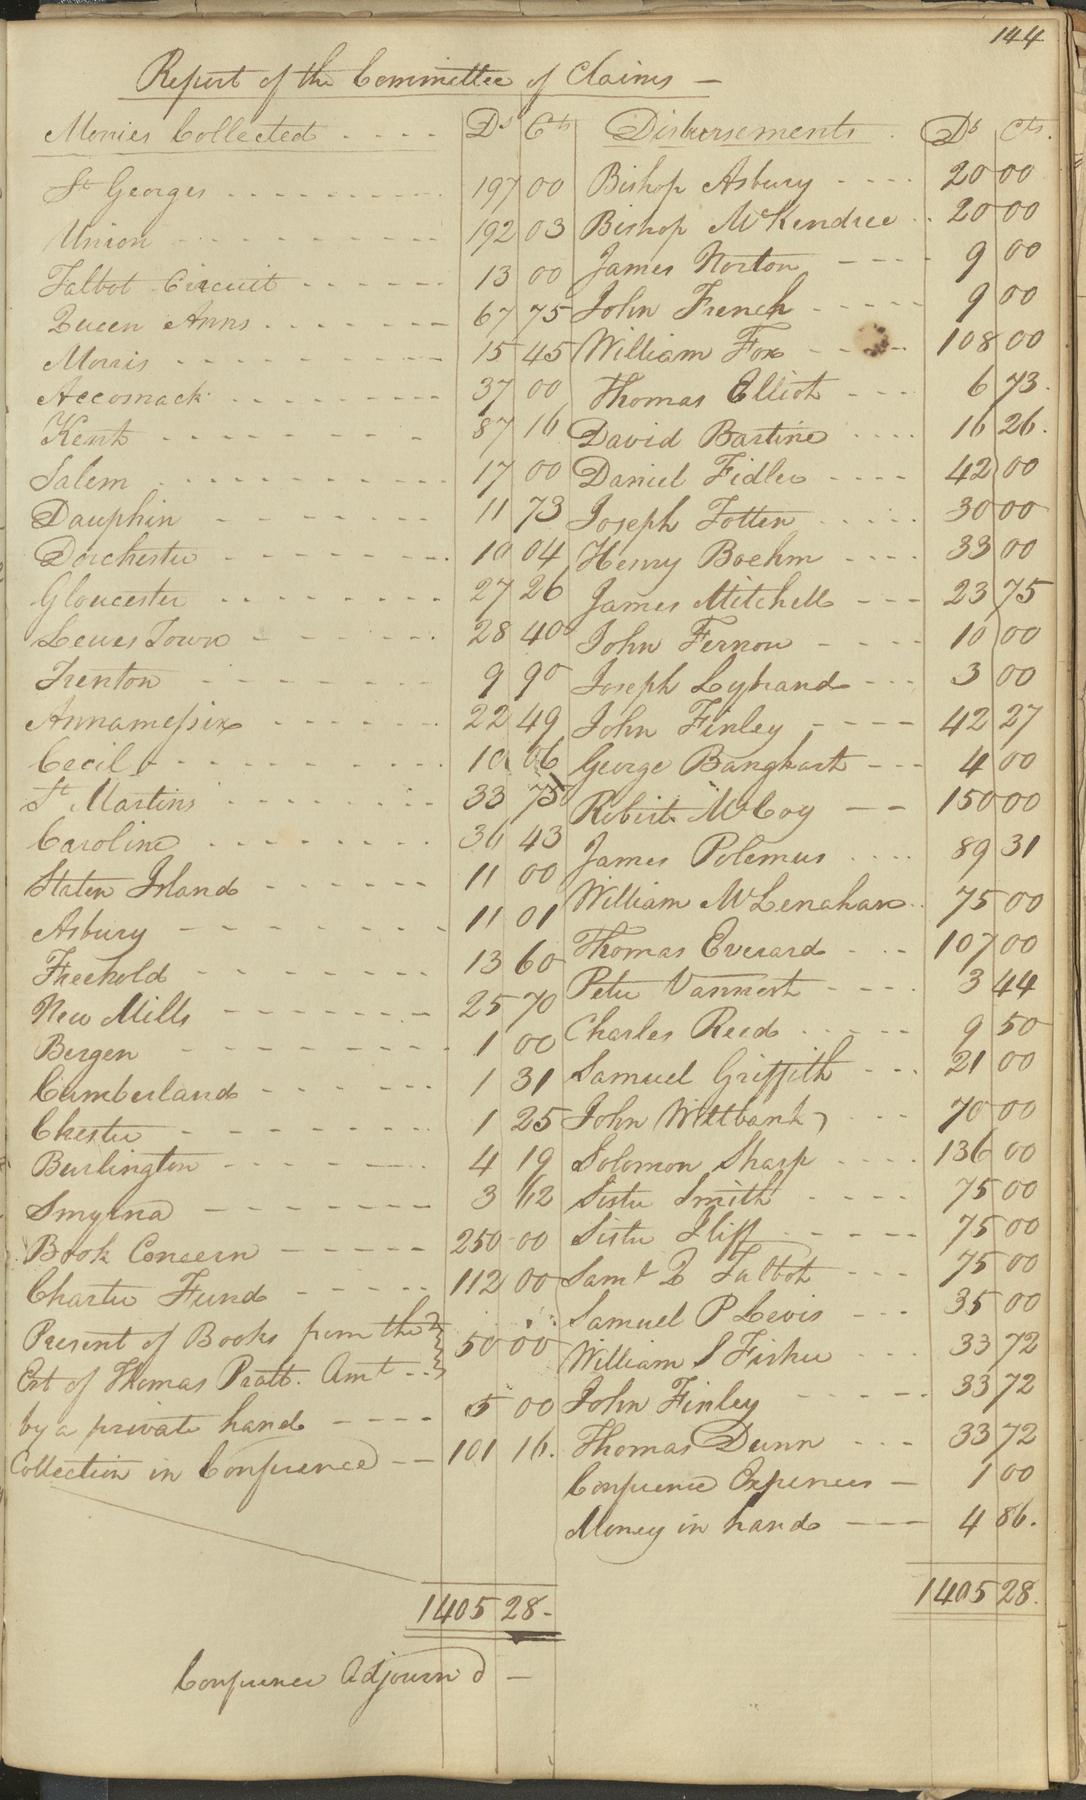 144
Report of the Committee of Claims —
Monies Collected .... Ds Cts Disbursements . Ds Cts.
St Georges 197 00 Bishop Asbury 20 00
Union 192 03 Bishop McKendree 20 00
Talbot Circuit 13 00 James Norton 9 00
Queen Anns 67 75 John French 9 00
Morris 15 45 William Fox 108 00
Accomack 37 00 Thomas Elliot 6 73.
Kent 87 16 David Bartine 16 26.
Salem 17 00 Daniel Fidler 42 00
Dauphin 11 73 Joseph Totten 30 00
Dorchester 10 04 Henry Boehm 33 00
Gloucester 27 26 James Mitchell 23 75
Lewes Town 28 40 John Fernon 10 00
Trenton 9 90 Joseph Lybrand 3 00
Annamessix 22 49 John Finley 42 27
Cecil 10 06 George Banghart 4 00
St Martins 33 75 Robert McCoy 150 00
Caroline 36 43 James Polemus 89 31
Staten Island 11 00 William McLenahan 75 00
Asbury 11 01 Thomas Everard 107 00
Freehold 13 60 Peter Vannest 3 44
New Mills 25 70 Charles Reed 9 50
Bergen 1 00 Samuel Griffith 21 00
Cumberland 1 31 John Wiltbank 70 00
Chester 1 25 Solomon Sharp 136 00
Burlington 4 19 Sister Smith 75 00
Smyrna 3 62 Sister Iliff 75 00
Book Concern 250 00 Saml Q Talbot 75 00
Charter Fund 112 00 Samuel P Levis 35 00
Present of Books from the 50 00 William S Fisher 33 72
Est of Thomas Pratt. Amt John Finley 33 72
by a private hand 5 00 Thomas Dunn 33 72
Collection in Conference 101 16. Conference Expences — 1 00
Money in hand 4 86.
1405 28- 1405 28.
Conference Adjourn d —